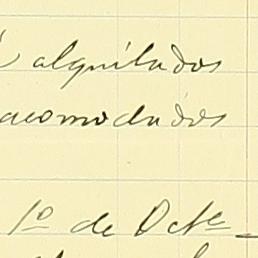 alquilados
acomodados
1º de Octe